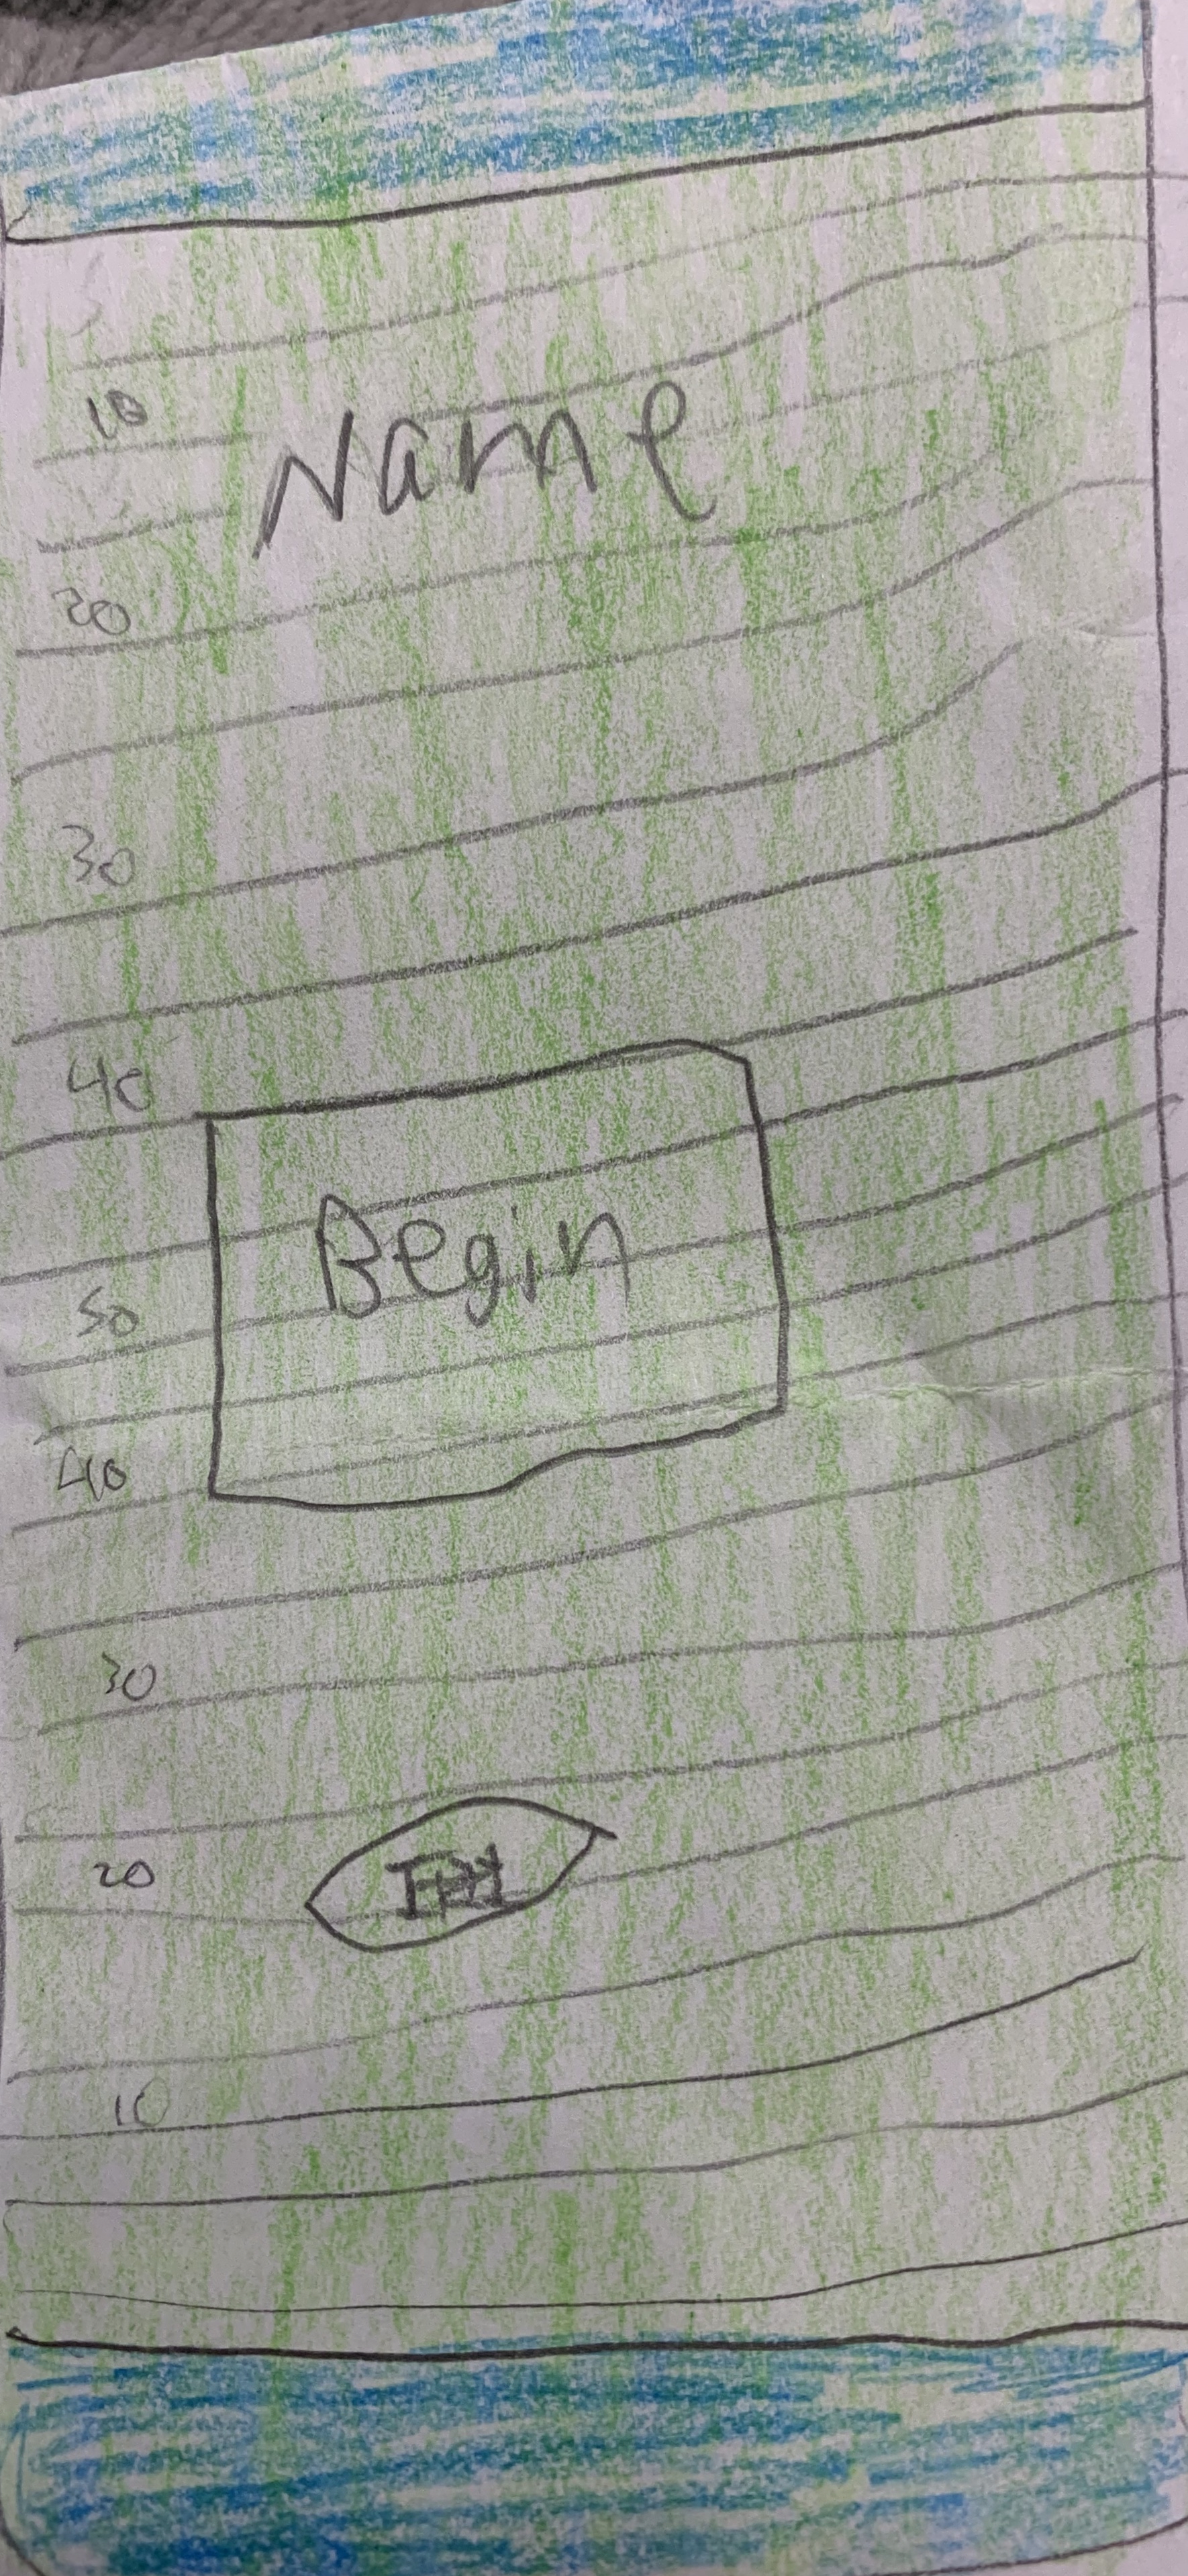 10
Name
20
30
40
Begin
50
40
30
20
10